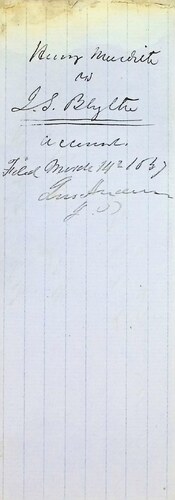 Henry Meredith
vs
J. S. Blythe
account
Filed March 14th 1857
J. P.